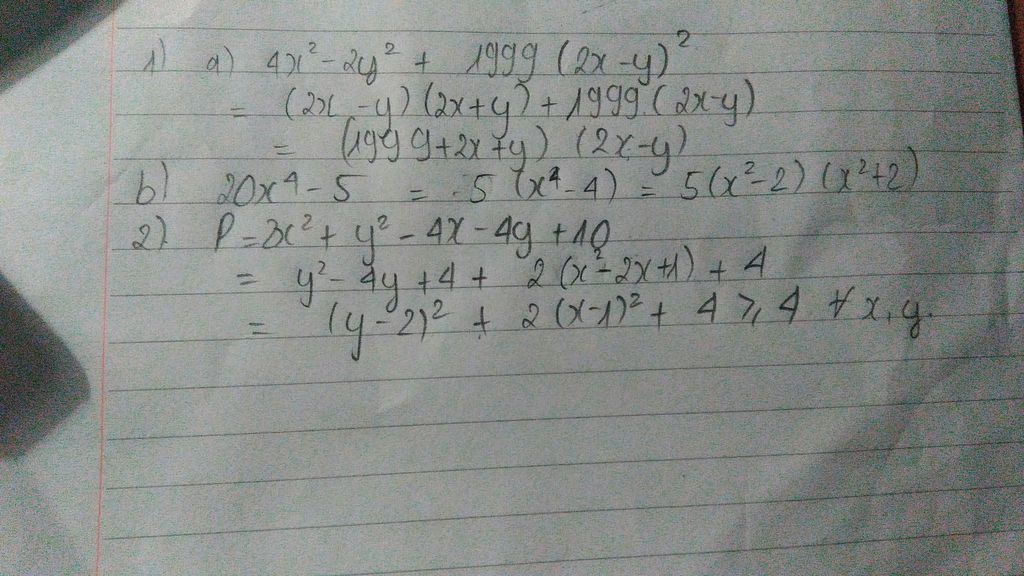 1) a) 4x² - 2y² + 1999 (2x - y)²
= (2x - y) (2x + y) + 1999. (2x - y)
= (1999 + 2x + y) (2x - y)
b) 20x⁴ - 5 = 5 (x⁴ - 4) = 5 (x² - 2) (x² + 2)
2) P = 3x² + y² - 4x - 4y + 10
= y² - 4y + 4 + 2 (x² - 2x + 1) + 4
= (y - 2)² + 2 (x - 1)² + 4 ⩾ 4 ∀ x, y.